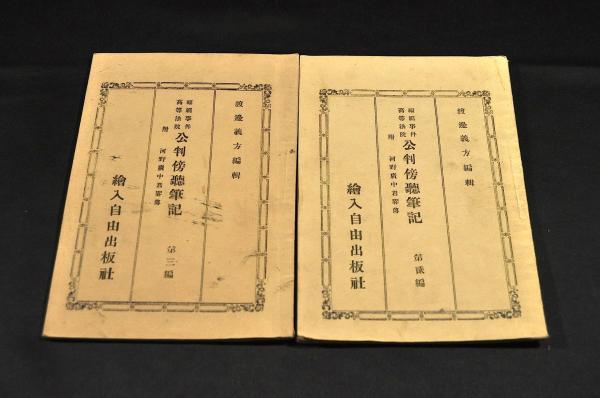 渡邊義方編輯
福嶋事件
高等法院
公判傍聽筆記
第貳編
附 河野廣中君畧傳
繪入自由出版社
渡邊義方編輯
福嶋事件
高等法院
公判傍聽筆記
第三編
附 河野廣中君畧傳
繪入自由出版社